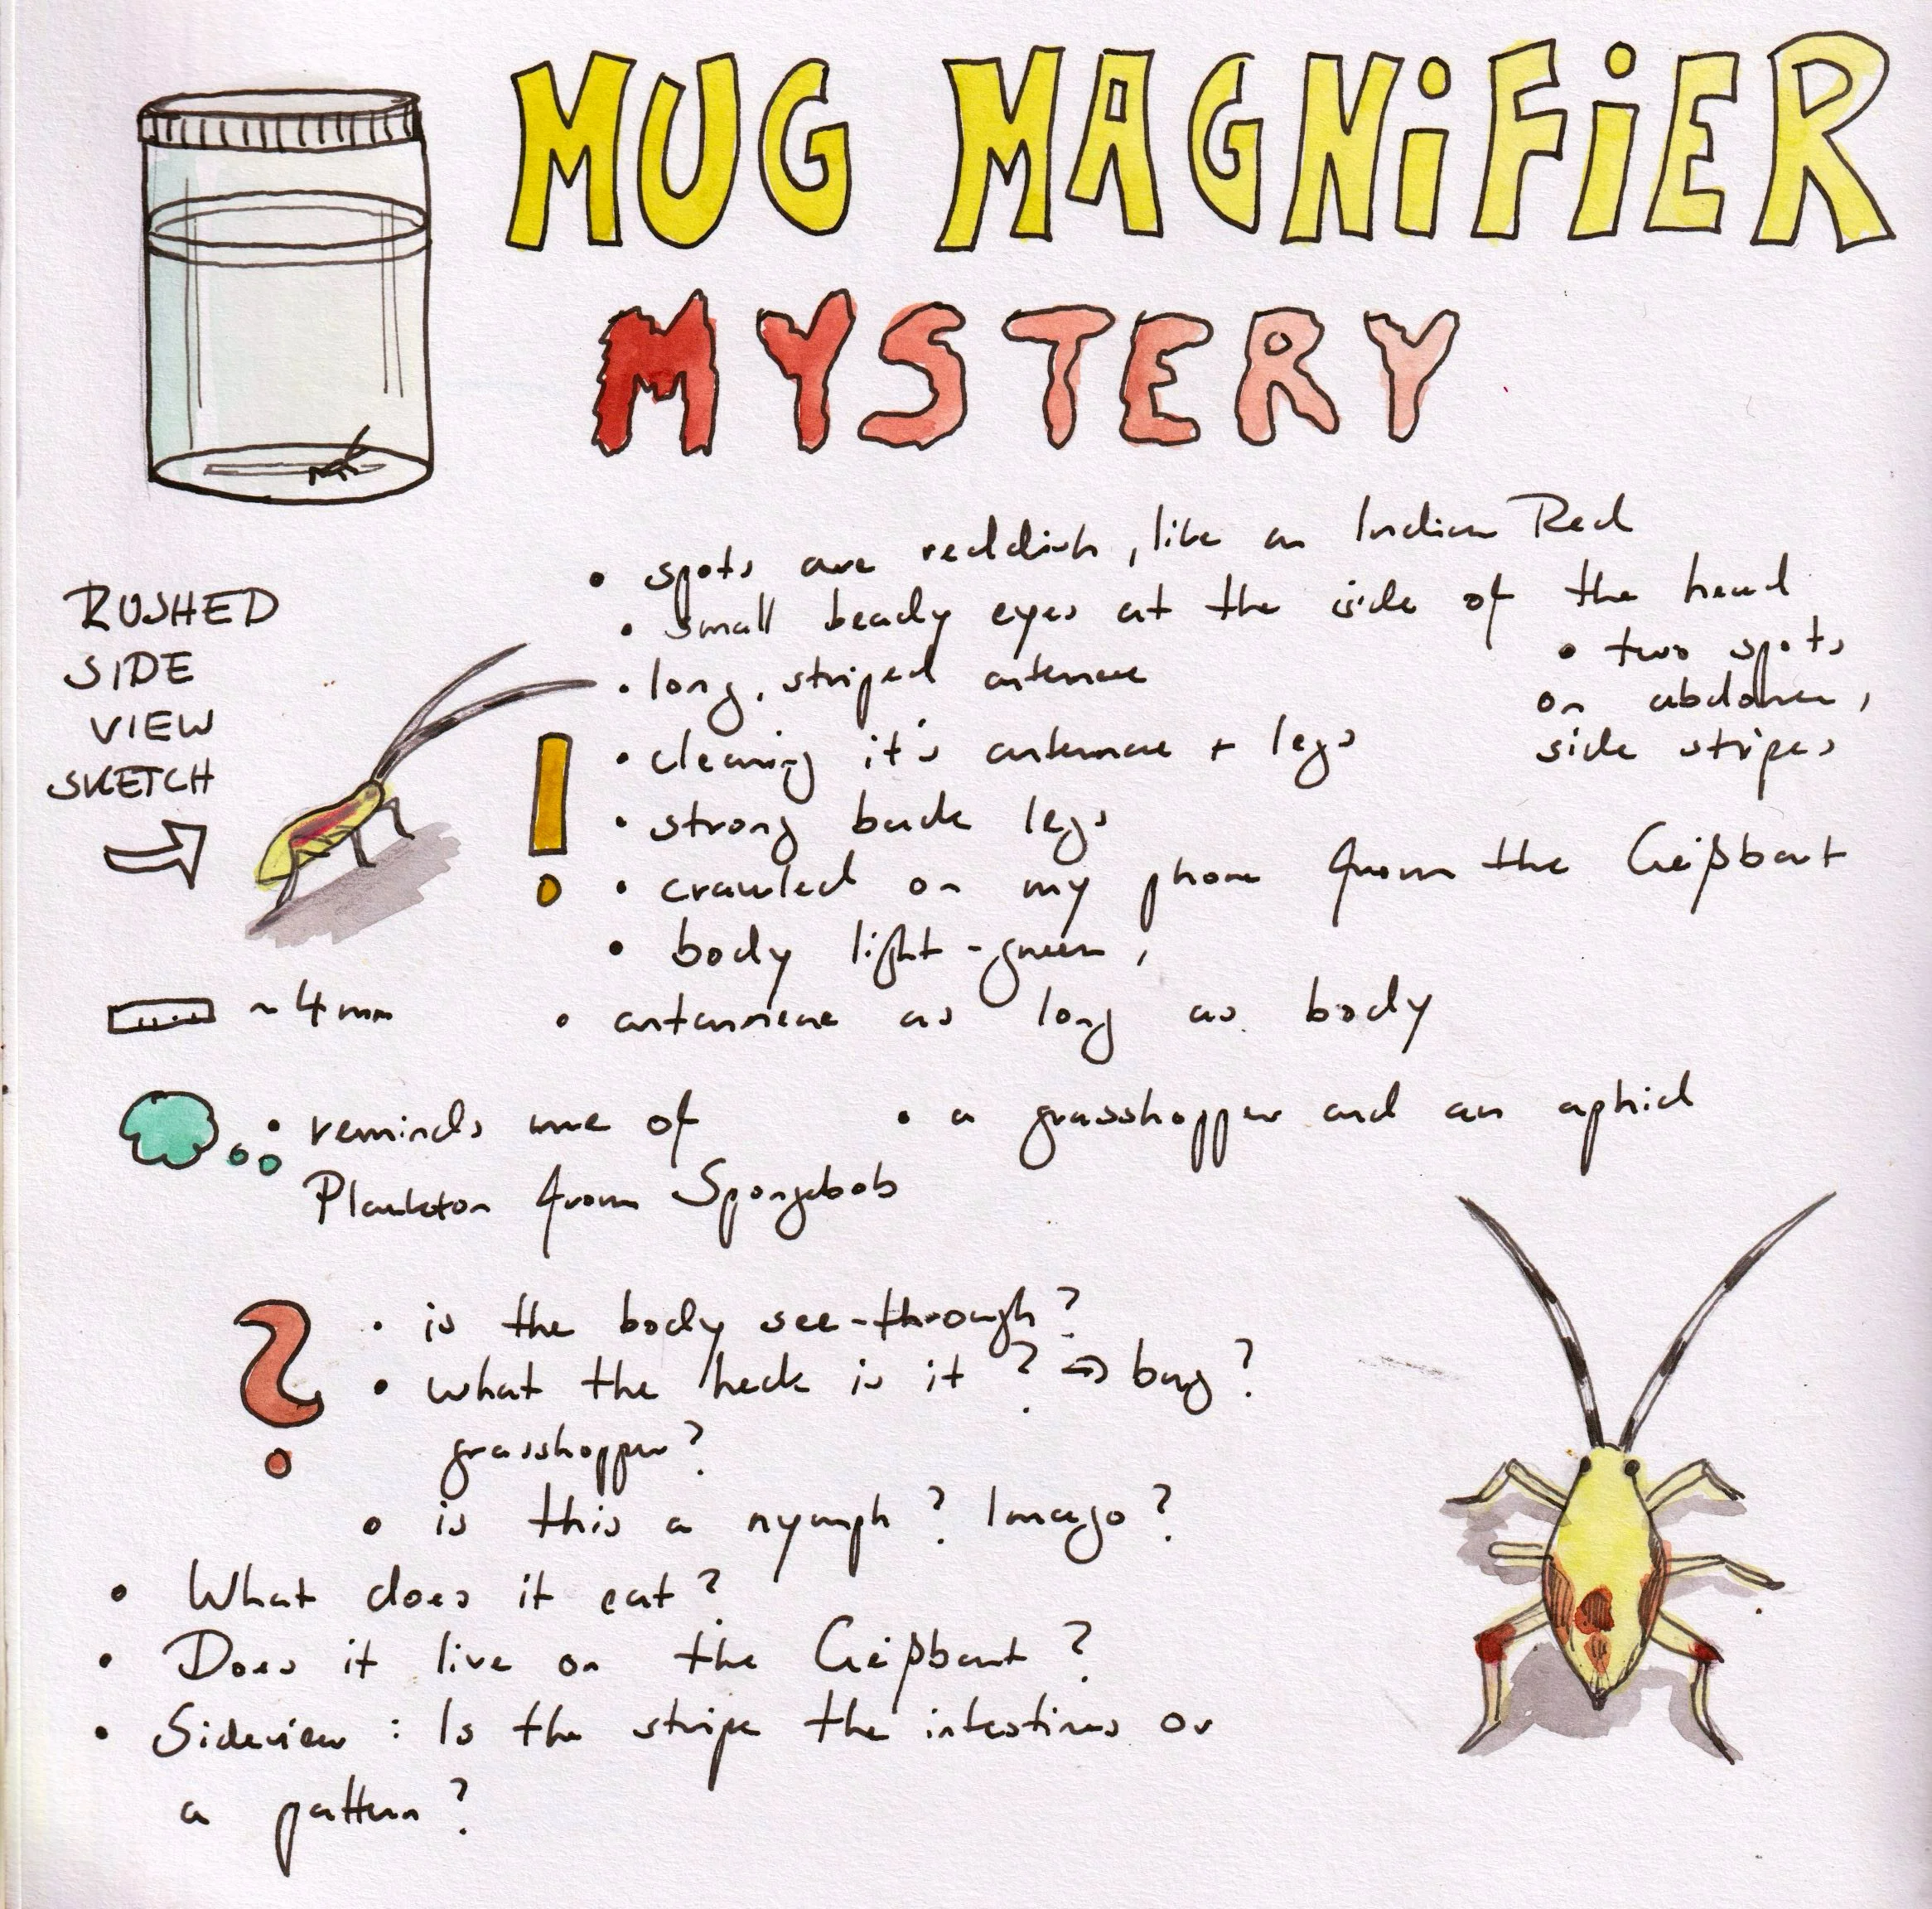 MUG MAGNiFiER
MYSTERY
• spots are reddish, like an Indian Red
• small beady eyes at the side of the head
• long, striped antennae
• two spots
on abdomen,
side stripes
RUSHED
SIDE
VIEW
SKETCH
! • cleaning it's antennae + legs
• strong back legs
• crawled on my phone from the Geißbart
• body light-green,
~ 4 mm
• antannneae as long as body
• reminds me of
Plankton from Spongebob
• a grasshopper and an aphid
? • is the body see-through?
• what the heck is it? ⇒ bug?
grasshopper?
• is this a nymph? Imago?
• What does it eat?
• Does it live on the Geißbart?
• Sideview: Is the stripe the intestines or
a pattern?